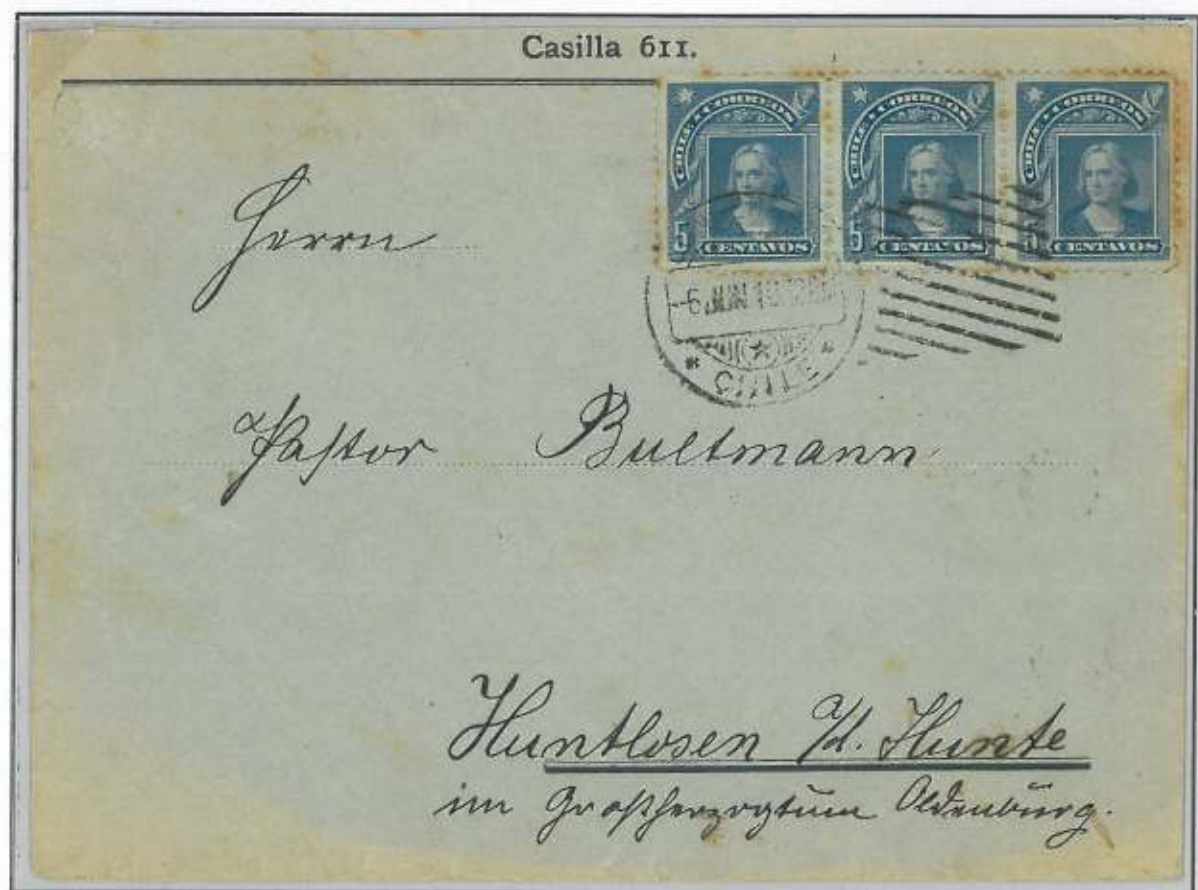 Casilla 611.
CHILE CORREOS CHILE CORREOS CHILE CORREOS
5 CENTAVOS 5 CENTAVOS 5 CENTAVOS
Herrn
6 JUN 10
CHILE
Pastor Bultmann
Huntlosen a/d. Hunte
im Großherzogtum Oldenburg.